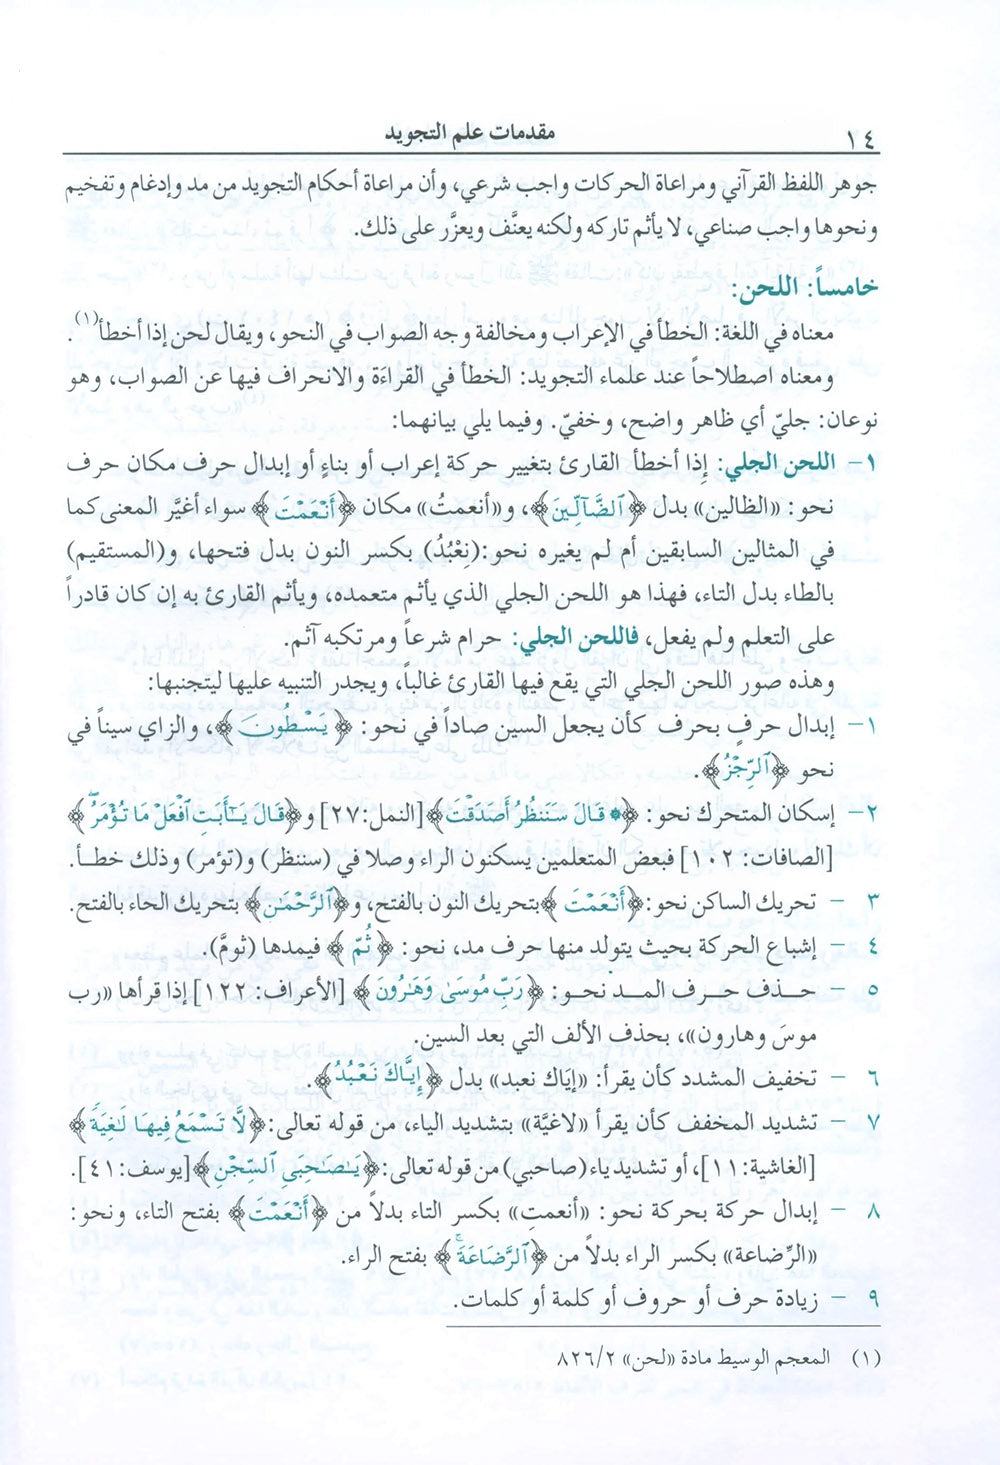 ١٤
مقدمات علم التجويد
جوهر اللفظ القرآني ومراعاة الحركات واجب شرعي، وأن مراعاة أحكام التجويد من مد وإدغام وتفخيم
ونحوها واجب صناعي، لا يأثم تاركه ولكنه يعنَّف ويعزَّر على ذلك.
خامساً: اللحن:
معناه في اللغة: الخطأ في الإعراب ومخالفة وجه الصواب في النحو، ويقال لحن إذا أخطأ(١).
ومعناه اصطلاحاً عند علماء التجويد: الخطأ في القراءَة والانحراف فيها عن الصواب، وهو
نوعان: جليّ أي ظاهر واضح، وخفيّ. وفيما يلي بيانهما:
١- اللحن الجلي: إِذا أخطأ القارئ بتغيير حركة إعراب أو بناءٍ أو إبدال حرف مكان حرف
نحو: «الظالين» بدل ﴿ٱلضَّآلِّينَ﴾، و«أنعمتُ» مكان ﴿أَنْعَمْتَ﴾ سواء أغيَّر المعنى كما
في المثالين السابقين أم لم يغيره نحو:(نِعْبُدُ) بكسر النون بدل فتحها، و(المستقيم)
بالطاء بدل التاء، فهذا هو اللحن الجلي الذي يأثم متعمده، ويأثم القارئ به إن كان قادراً
على التعلم ولم يفعل، فاللحن الجلي: حرام شرعاً ومرتكبه آثم.
وهذه صور اللحن الجلي التي يقع فيها القارئ غالباً، ويجدر التنبيه عليها ليتجنبها:
١- إبدال حرفٍ بحرف كأن يجعل السين صاداً في نحو: ﴿يَسْطُونَ﴾، والزاي سيناً في
نحو ﴿ٱلرِّجْزُ﴾.
٢- إسكان المتحرك نحو: ﴿۞ قَالَ سَنَنظُرُ أَصَدَقْتَ﴾[النمل:٢٧] و﴿قَالَ يَـٰٓأَبَتِ ٱفْعَلْ مَا تُؤْمَرُ ۖ﴾
[الصافات: ١٠٢] فبعض المتعلمين يسكنون الراء وصلا في (سننظر) و(تؤمر) وذلك خطأ.
٣ - تحريك الساكن نحو:﴿أَنْعَمْتَ ﴾بتحريك النون بالفتح، و﴿ٱلرَّحْمَـٰنِ﴾ بتحريك الحاء بالفتح.
٤ - إشباع الحركة بحيث يتولد منها حرف مد، نحو: ﴿ثُمَّ ﴾ فيمدها (ثومَّ).
٥ - حـذف حـرف المـد نحـو: ﴿رَبِّ مُوسَىٰ وَهَـٰرُونَ ﴾ [الأعراف: ١٢٢] إذا قرأها «رب
موسَ وهارون»، بحذف الألف التي بعد السين.
٦ - تخفيف المشدد كأن يقرأ: «إيَاك نعبد» بدل ﴿إِيَّاكَ نَعْبُدُ﴾.
٧ - تشديد المخفف كأن يقرأ «لاغيَّة» بتشديد الياء، من قوله تعالى:﴿لَّا تَسْمَعُ فِيهَا لَـٰغِيَةً﴾
[الغاشية:١١]، أو تشديد ياء (صاحبي) من قوله تعالى:﴿يَـٰصَـٰحِبَىِ ٱلسِّجْنِ﴾[يوسف:٤١].
٨ - إبدال حركة بحركة نحو: «أنعمتِ» بكسر التاء بدلاً من ﴿أَنْعَمْتَ﴾ بفتح التاء، ونحو:
«الرِّضاعة» بكسر الراء بدلاً من ﴿ٱلرَّضَاعَةَ ۚ﴾ بفتح الراء.
٩ - زيادة حرف أو حروف أو كلمة أو كلمات.
(١) المعجم الوسيط مادة «لحن» ٨٢٦/٢